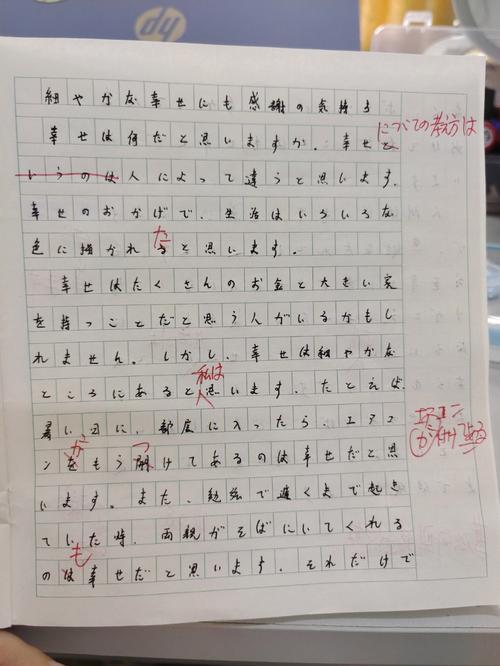 hp
細やかな幸せにも感謝の気持ち
幸せは何だと思いますか。幸せと
についての考え方は
いうのは人によって違うと思います。
幸せのおかげで、生活はいろいろな
た
色に描かれると思います。
幸せはたくさんのお金と大きい家
を持つことだと思う人がいるかもし
れません。しかし、幸せは細やかな
私は
ところにあると思います。たとえば、
暑い日に、部屋に入ったら、エアコ
が
つ
ンをもう開けてあるのは幸せだと思
います。また、勉強で遅くまで起き
ていた時、両親がそばにいてくれる
も
のは幸せだと思います。それだけで